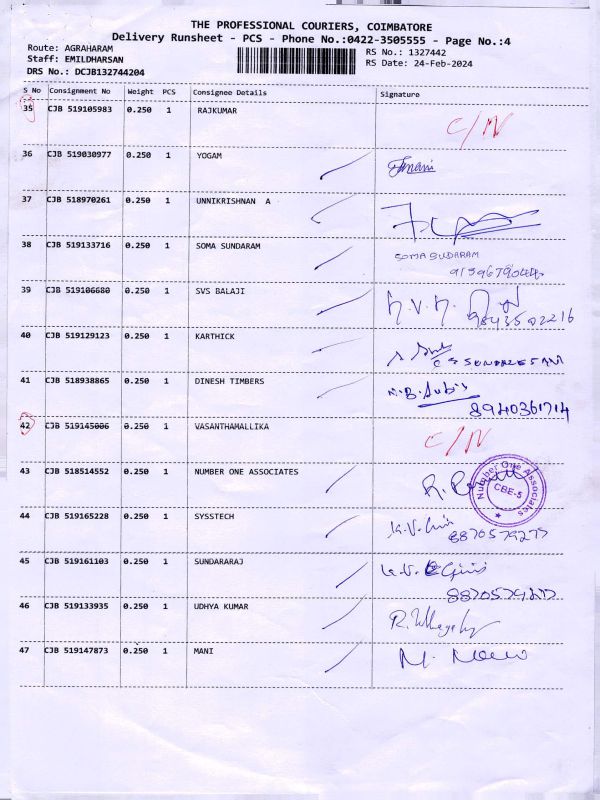 THE PROFESSIONAL COURIERS, COIMBATORE
Delivery Runsheet - PCS - Phone No.:0422-3505555 - Page No.:4
Route: AGRAHARAM
Staff: EMILDHARSAN
DRS No.: DCJB132744204
RS No.: 1327442
RS Date: 24-Feb-2024
S No Consignment No Weight PCS Consignee Details Signature
35 CJB 519105983 0.250 1 RAJKUMAR C/N
36 CJB 519030977 0.250 1 YOGAM
37 CJB 518970261 0.250 1 UNNIKRISHNAN A
38 CJB 519133716 0.250 1 SOMA SUNDARAM SOMA SUDARAM
39 CJB 519106680 0.250 1 SVS BALAJI 9843502216
40 CJB 519129123 0.250 1 KARTHICK
41 CJB 518938865 0.250 1 DINESH TIMBERS
8940361714
42 CJB 519145006 0.250 1 VASANTHAMALLIKA C/N
43 CJB 518514552 0.250 1 NUMBER ONE ASSOCIATES Number One Associates CBE-5
44 CJB 519165228 0.250 1 SYSSTECH
8870579277
45 CJB 519161103 0.250 1 SUNDARARAJ
8870579277
46 CJB 519133935 0.250 1 UDHYA KUMAR
47 CJB 519147873 0.250 1 MANI